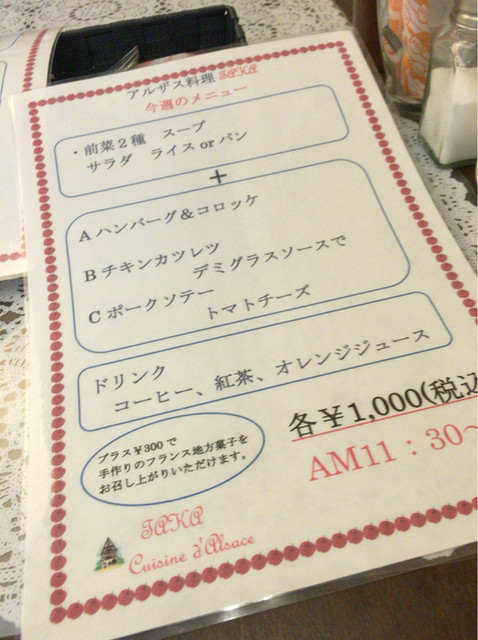 アルザス料理 TAKA
今週のメニュー
・前菜2種 スープ
サラダ ライス or パン
+
A ハンバーグ&コロッケ
B チキンカツレツ
デミグラスソースで
C ポークソテー
トマトチーズ
ドリンク
コーヒー、紅茶、オレンジジュース
各¥1,000(税込
AM11:30~
プラス¥300で
手作りのフランス地方菓子を
お召し上がりいただけます。
TAKA
Cuisine d'Alsace